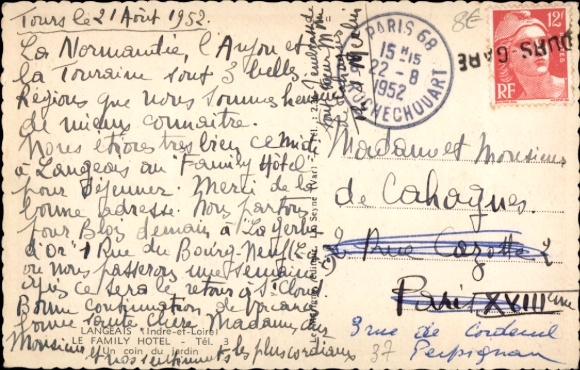 Tours le 21 Août 1952.
La Normandie, l'Anjou et
la Touraine sont 3 belles
Régions que nous sommes heureux
de mieux connaitre.
Nous étions très bien ce midi
à Langeais au "Family Hôtel"
pour déjeuner. Merci de la
bonne adresse. Nous partons
pour Blois demain à "La Gerbe
d'Or" 1 Rue du Bourg-Neuf
où nous passerons une semaine
Puis ce sera le retour à St Cloud
Bonne continuation de vacances
bonne santé chère Madame, cher
Monsieur et nos sentiments les plus cordiaux
LANGEAIS (Indre-et-Loire)
LE FAMILY HOTEL - Tél. 3
Un coin du jardin
PARIS 68
15 H 15
22 - 8
1952
R. ROCHECHOUART
8€
12F
RF
TOURS GARE
Madame et Monsieur
de Cahagnes
2 Rue Cazotte 2
Paris XVIIIème
3 rue de
Perpignan
37